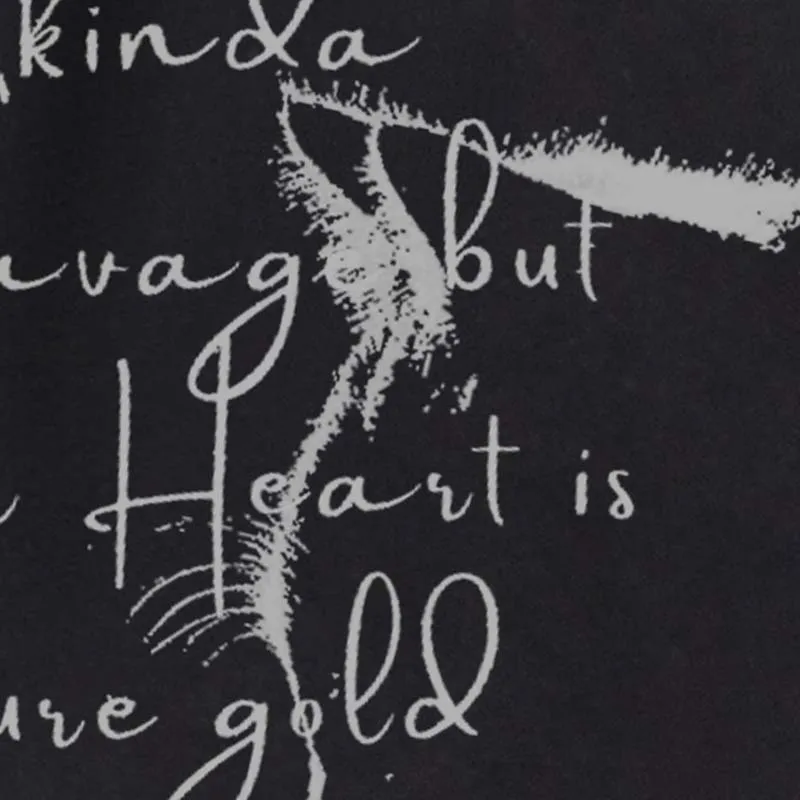 kinda
avage but
Heart is
ure gold